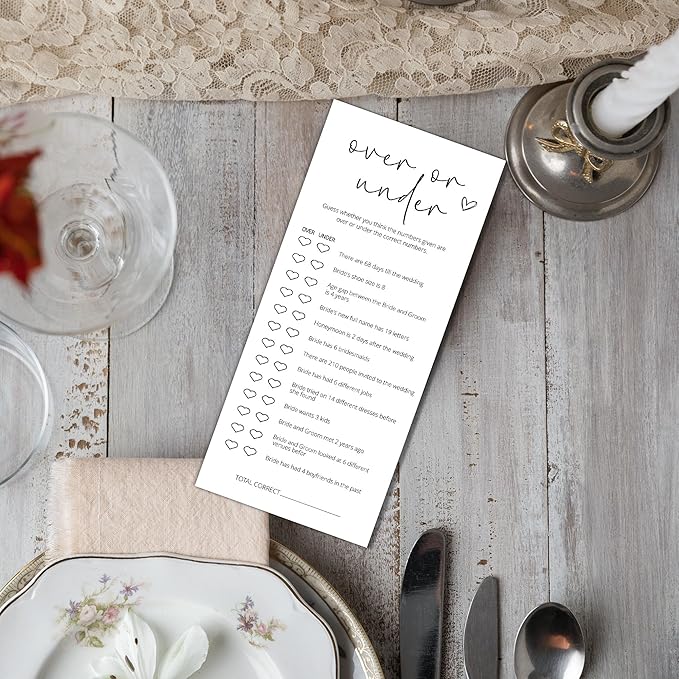 over or
under
Guess whether you think the numbers given are
over or under the correct numbers.
OVER UNDER
There are 68 days till the wedding
Bride's shoe size is 8
Age gap between the Bride and Groom
is 4 years
Bride's new full name has 19 letters
Honeymoon is 2 days after the wedding
Bride has 6 bridesmaids
There are 210 people invited to the wedding
Bride has had 6 different jobs
Bride tried on 14 different dresses before
she found
Bride wants 3 kids
Bride and Groom met 2 years ago
Bride and Groom looked at 6 different
venues befor
Bride has had 4 boyfriends in the past
TOTAL CORRECT